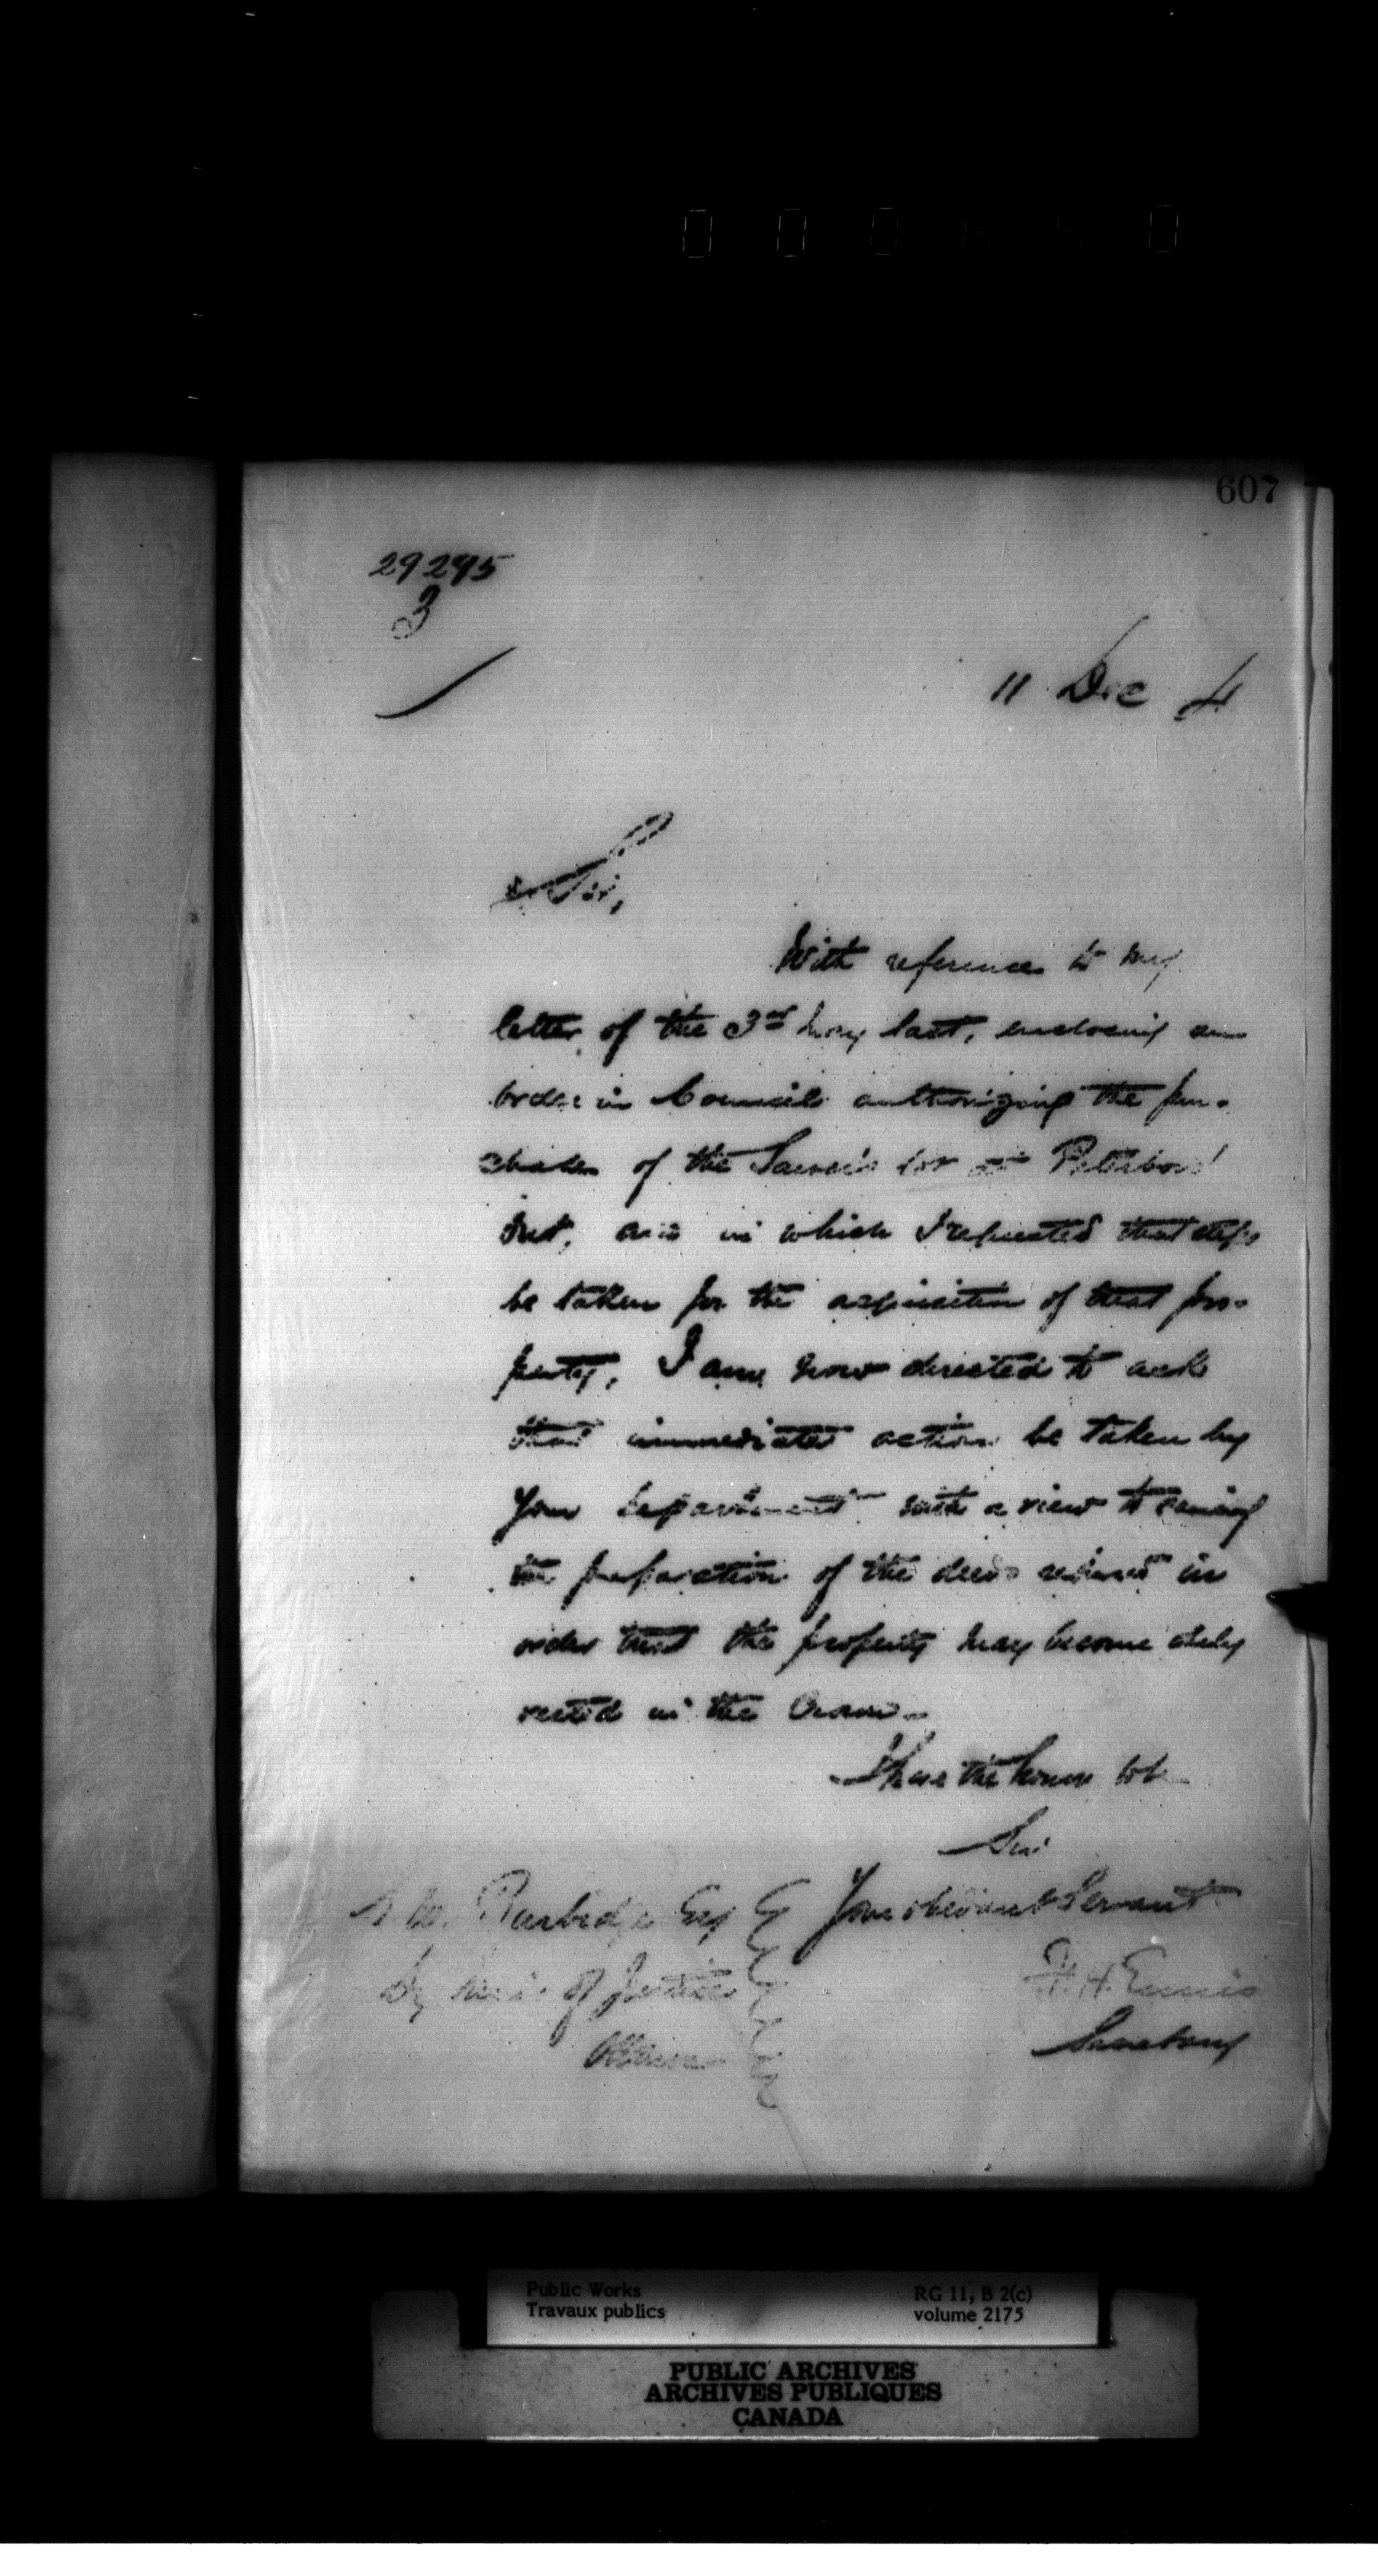 607
29295
3
11 Dec 4
Sir,
With reference to my
letter of the 3rd May last, enclosing an
order in Council authorizing the pur-
chase of the lot at Peterboro'
Ont, and in which I requested that steps
be taken for the acquisition of that pro-
perty, I am now directed to ask
that immediate action be taken by
your department with a view to causing
the preparation of the deeds required in
order that the property may become duly
vested in the Crown.
I have the honor to be
Sir
Your obedient Servant
F. H. Ennis
Secretary
Burbidge Esq
Dy Min. of Justice
Ottawa
Public Works
Travaux publics
RG 11, B 2(c)
volume 2175
PUBLIC ARCHIVES
ARCHIVES PUBLIQUES
CANADA